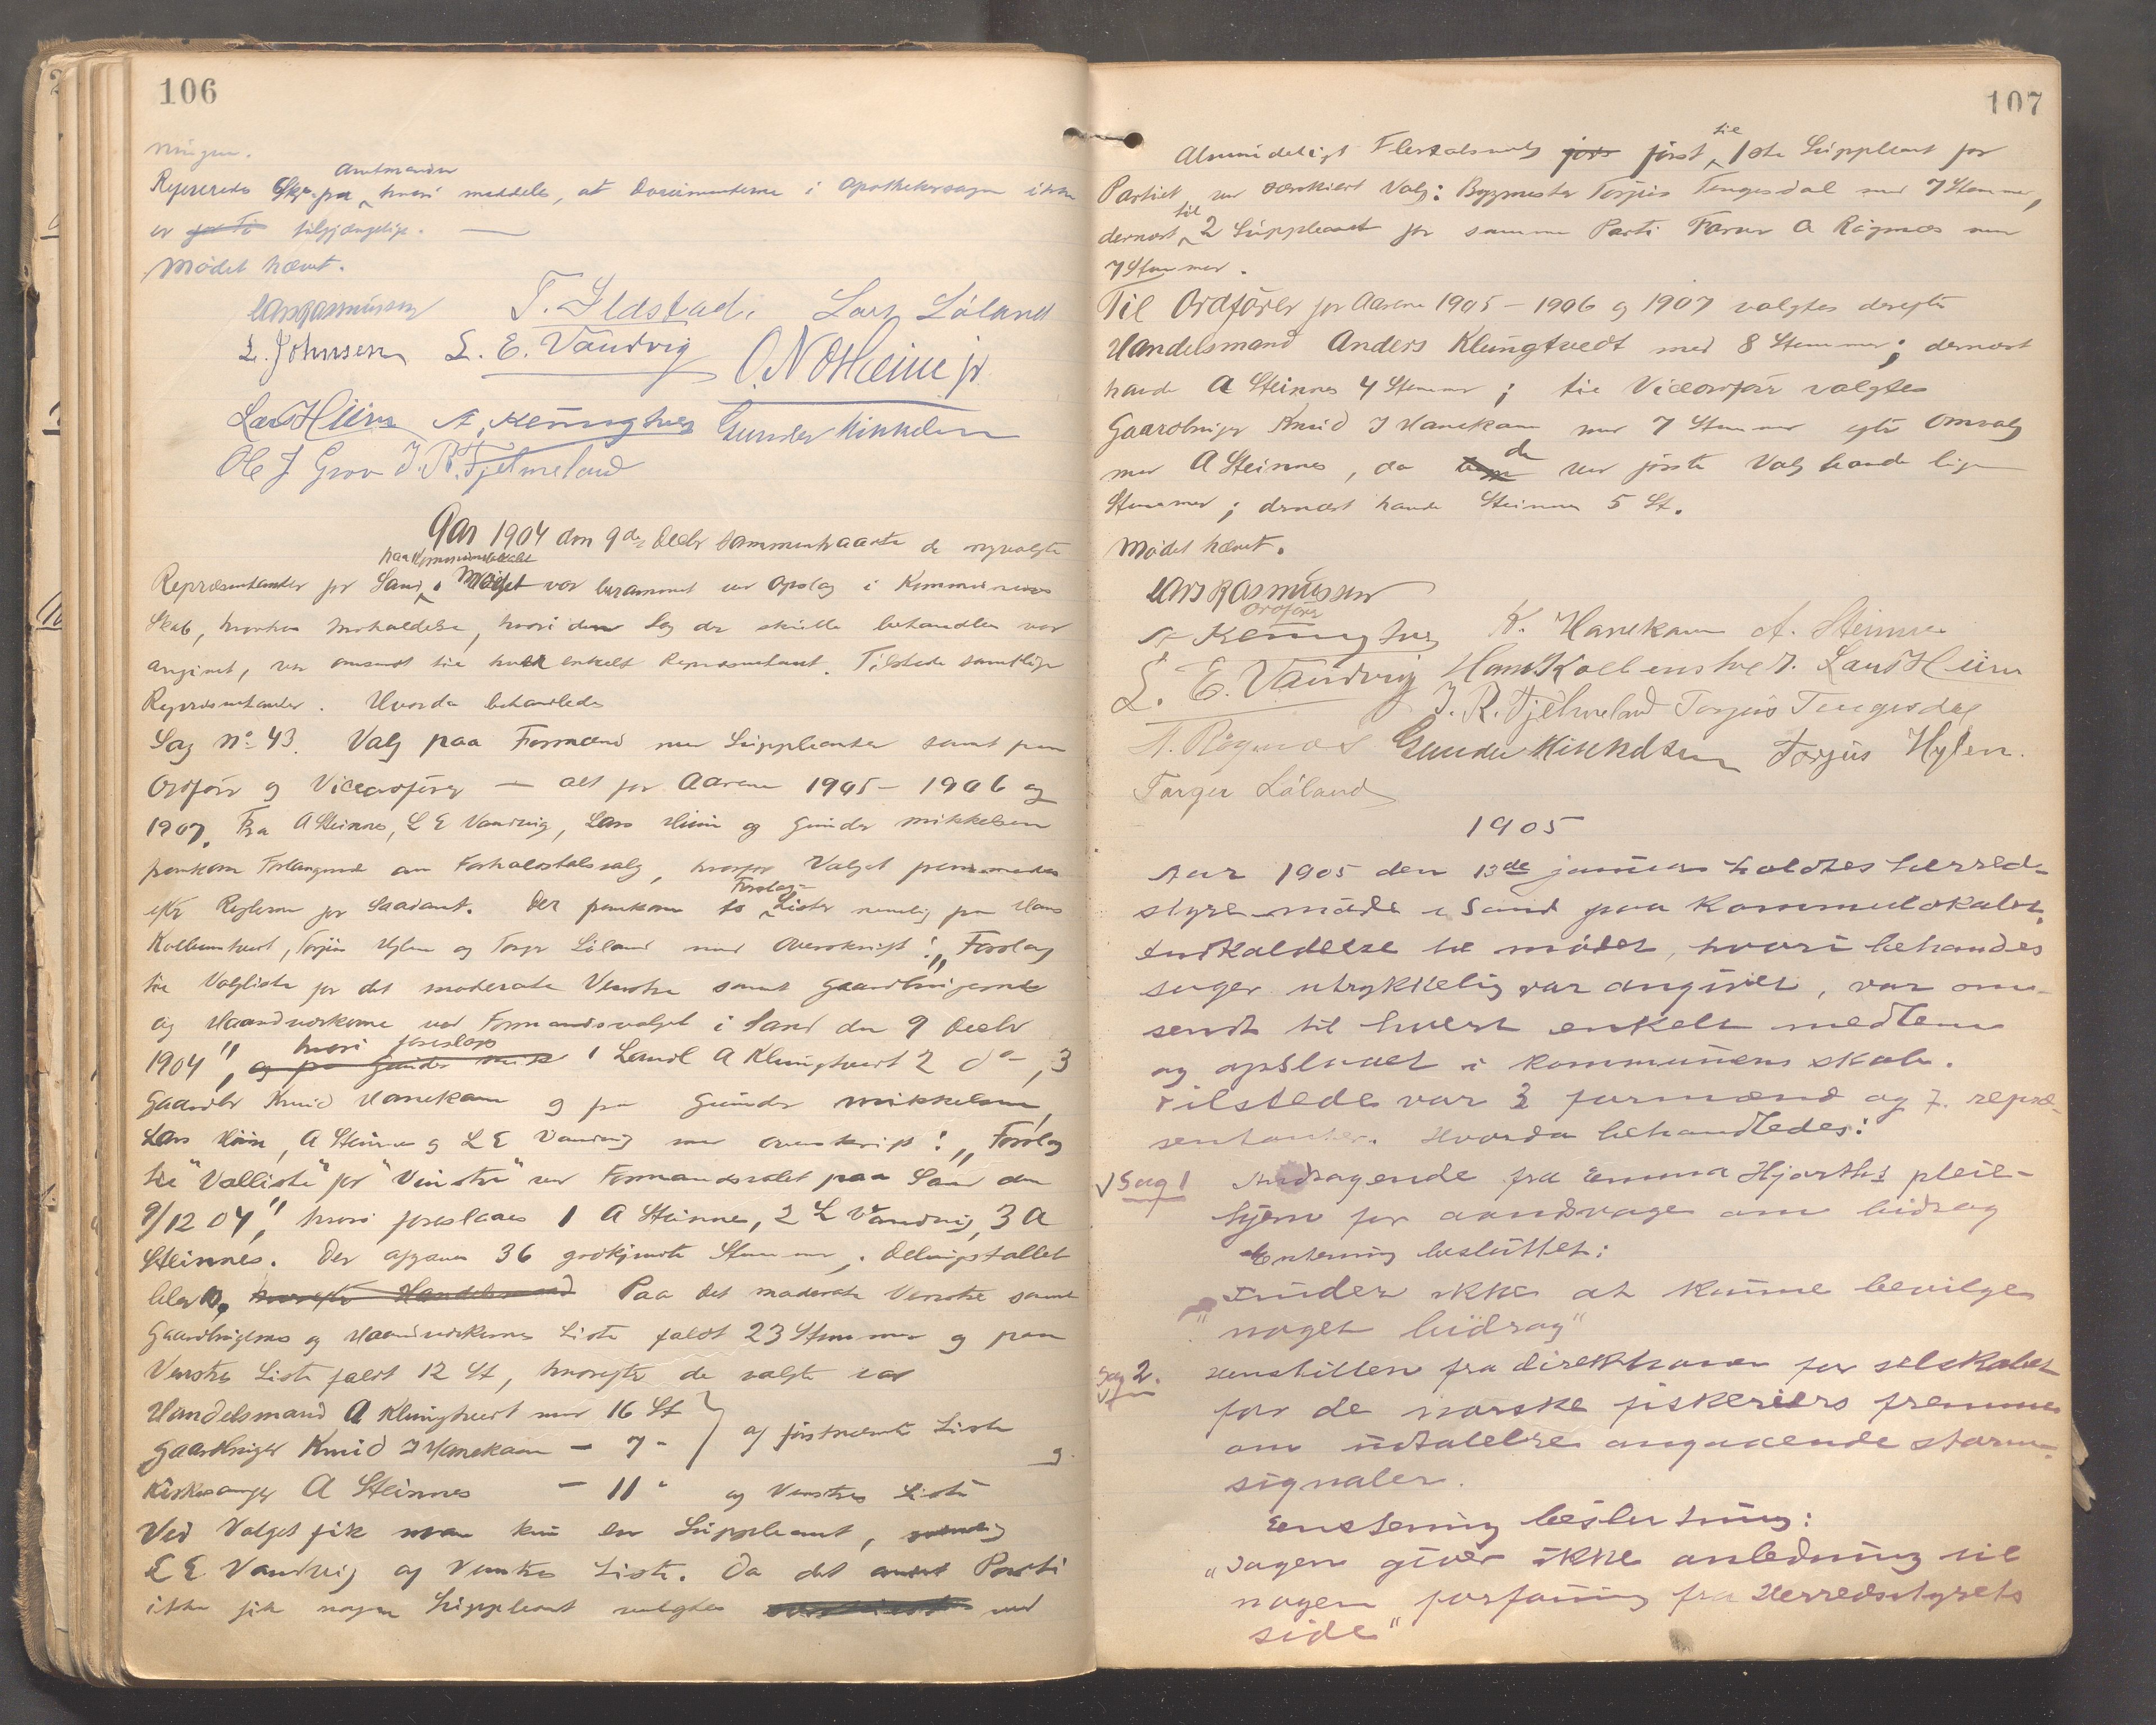 106
ningen.
Refereredes Skr. fra Amtmanden hvori meddeles, at Documenterne i Apothekersagen ikke
er tilgjængelige.
Mødet hævet.
Lars Rasmussen T. Ilstad. Lars Løland
L. Johnsen L. E. Vandvig O. N. Østheim jr.
Lars Hiim A. Klungtvedt Gunder Mikkelsen
Ole J Grov J. R. Fjelmeland
Aar 1904 den 9de Decbr sammentraadte de nyvalgte
Repræsentanter for Sand paa Kommunelokalet. Mødet var berammet ved Opslag i Kommunens
Skab, hvorhos Indkaldelse, hvori den Sag der skulde behandles var
angivet, var omsendt til hver enkelt Repræsentant. Tilstede samtlige
Repræsentanter. Hvorda behandledes
Sag No 43. Valg paa Formænd med Suppleanter samt paa
Ordfører og Viceordfører — alt for Aarene 1905 - 1906 og
1907. Fra A Steinnes, L E Vandvig, Lars Hiim og Gunder Mikkelsen
fremkom Forlangende om Forholdstalsvalg, hvorfor Valget fremmedes
efter Reglerne for Saadant. Der fremkom to Forslags-Lister nemlig fra Hans
Kolbenstvedt, Torjus Hylen og Torger Løland med Overskrift: „Forslag
til Valgliste for det moderate Venstre samt Gaardbrugerne
og Haandværkerne ved Formandsvalget i Sand den 9 Decbr
1904", hvori foreslaaes 1 Landh. A Klungtvedt 2 do, 3
Gaardbr Knud Hanekam og fra Gunder Mikkelsen,
Lars Hiim, A Steinnes og L E Vandvig med Overskrift: „Forslag
til "Valliste" for "Venstre" ved Formandsvalet paa Sand den
9/12 04", hvori foreslaaes 1 A Steinnes, 2 L Vandvig, 3 A
Steinnes. Der afgaves 36 godkjendte Stemmer. Delingstallet
blev Paa det moderate Venstre samt
Gaardbrugernes og Haandværkernes Liste faldt 23 Stemmer og paa
Venstres Liste faldt 12 St, hvorefter de valgte var
Handelsmand A Klungtvedt med 16 St
Gaardbruger Knud J Hanekam — 7 " } af førstnævnte Liste
og
Kirkesanger A Steinnes — 11 " af Venstres Liste
Ved Valget fik man kun en Suppleant, nemlig
L E Vandvig af Venstres Liste. Da det andet Parti
ikke fik nogen Suppleant valgtes ved
107
Almindeligt Flertalsvalg først til 1ste Suppleant for
Partiet ved særskilt Valg: Bygmester Torjus Tengesdal med 7 Stemmer,
dernæst til 2 Suppleant for samme Parti Farver A Røgnæs med
7 Stemmer.
Til Ordfører for Aarene 1905 - 1906 og 1907 valgtes derefter
Handelsmand Anders Klungtvedt med 8 Stemmer; dernæst
havde A Steinnes 4 Stemmer; til Viceordfører valgtes
Gaardbruger Knud J Hanekam med 7 Stemmer efter Omvalg
med A Steinnes, da de ved første Valg havde lige
Stemmer; dernæst havde Steinnes 5 St.
Mødet hævet.
Lars Rasmussen
Ordfører
A Klungtvedt K. Hanekam A. Steinnes
L. E. Vandvig Hans Kolbenstvedt. Lars Hiim
J. R. Fjelmeland Torjus Tengesdal
A. Røgnæs Gunder Mikkelsen Torjus Hylen.
Torger Løland
1905
Aar 1905 den 13de januar holdtes herred-
styremøde i Sand paa Kommunelokalet.
Indkaldelse til mødet, hvori behandles
sager utrykkelig var angivet, var om-
sendt til hvert enkelt medlem
og opslaaet i kommunens skab.
Tilstede var 3 formænd og 7. repræ-
sentanter. Hvorda behandledes:
Sag 1 Andragende fra Emma Hjorths pleie-
hjem for aandsvage om bidrag
Enstemmig besluttet:
"Finder ikke at kunne bevilge
noget bidrag"
Sag 2. Henstillen fra direktionen for selskabet
for de norske fiskeriers fremme
om udtalelse angaaende storm-
signaler.
Enstemmig beslutning:
"Sagen giver ikke anledning til
nogen forføining fra Herredsstyrets
side"